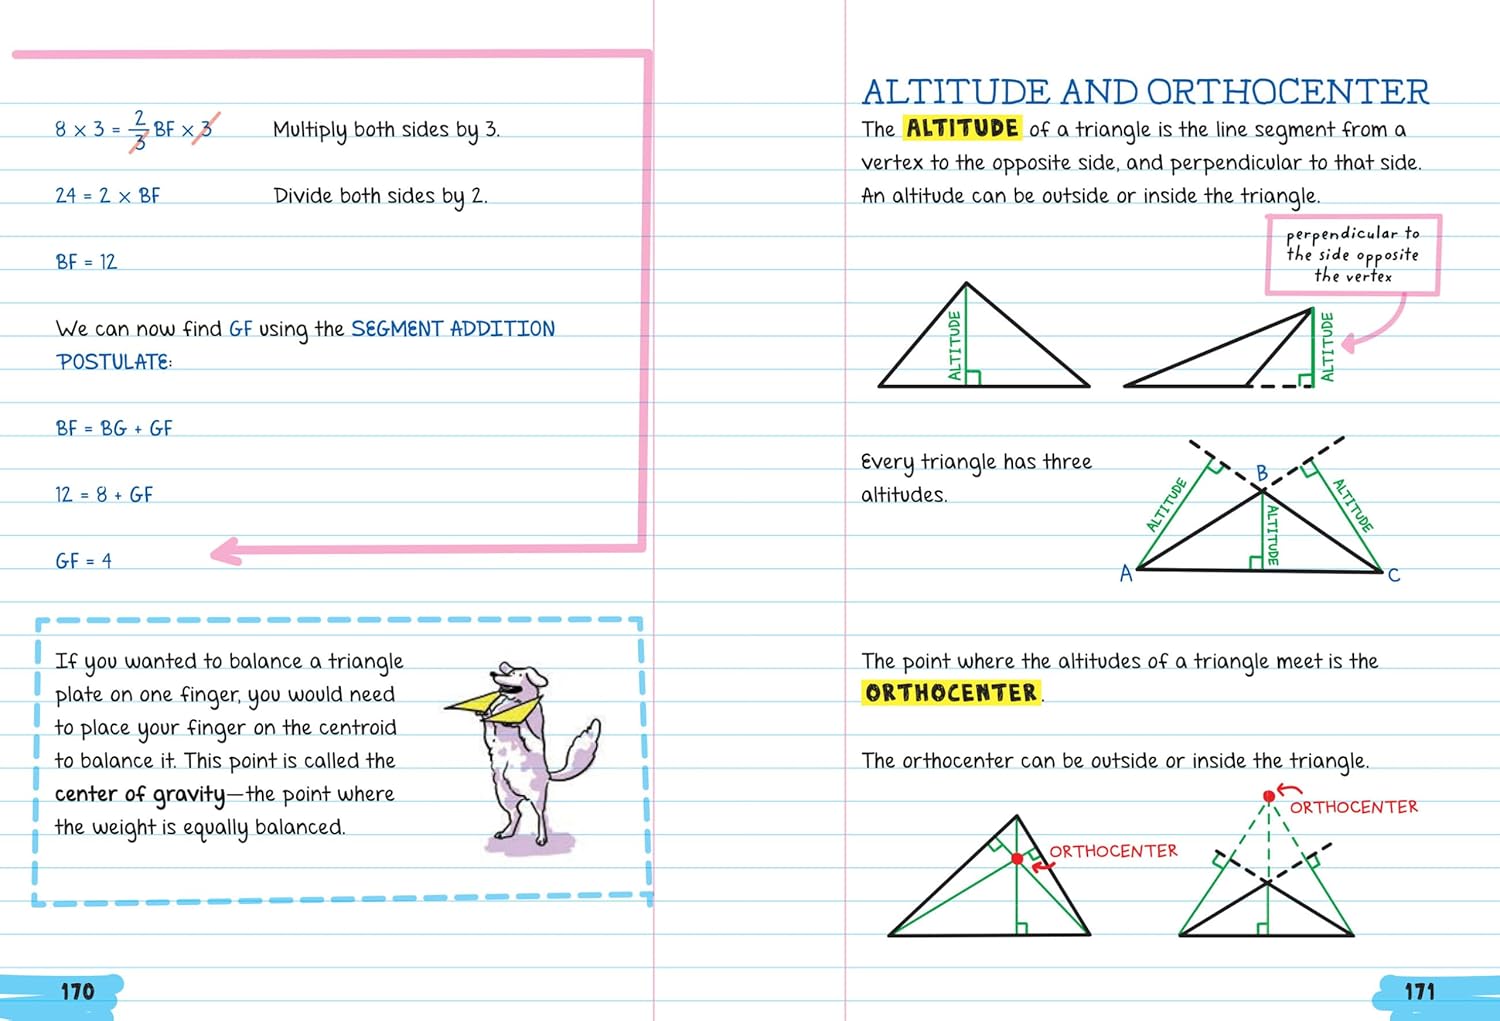 8 × 3 = 2/3 BF × 3 Multiply both sides by 3.
24 = 2 × BF Divide both sides by 2.
BF = 12
We can now find GF using the SEGMENT ADDITION
POSTULATE:
BF = BG + GF
12 = 8 + GF
GF = 4
If you wanted to balance a triangle
plate on one finger, you would need
to place your finger on the centroid
to balance it. This point is called the
center of gravity—the point where
the weight is equally balanced.
170
ALTITUDE AND ORTHOCENTER
The ALTITUDE of a triangle is the line segment from a
vertex to the opposite side, and perpendicular to that side.
An altitude can be outside or inside the triangle.
perpendicular to
the side opposite
the vertex
ALTITUDE
ALTITUDE
Every triangle has three
altitudes.
B
ALTITUDE
ALTITUDE
ALTITUDE
A
C
The point where the altitudes of a triangle meet is the
ORTHOCENTER.
The orthocenter can be outside or inside the triangle.
ORTHOCENTER
ORTHOCENTER
171